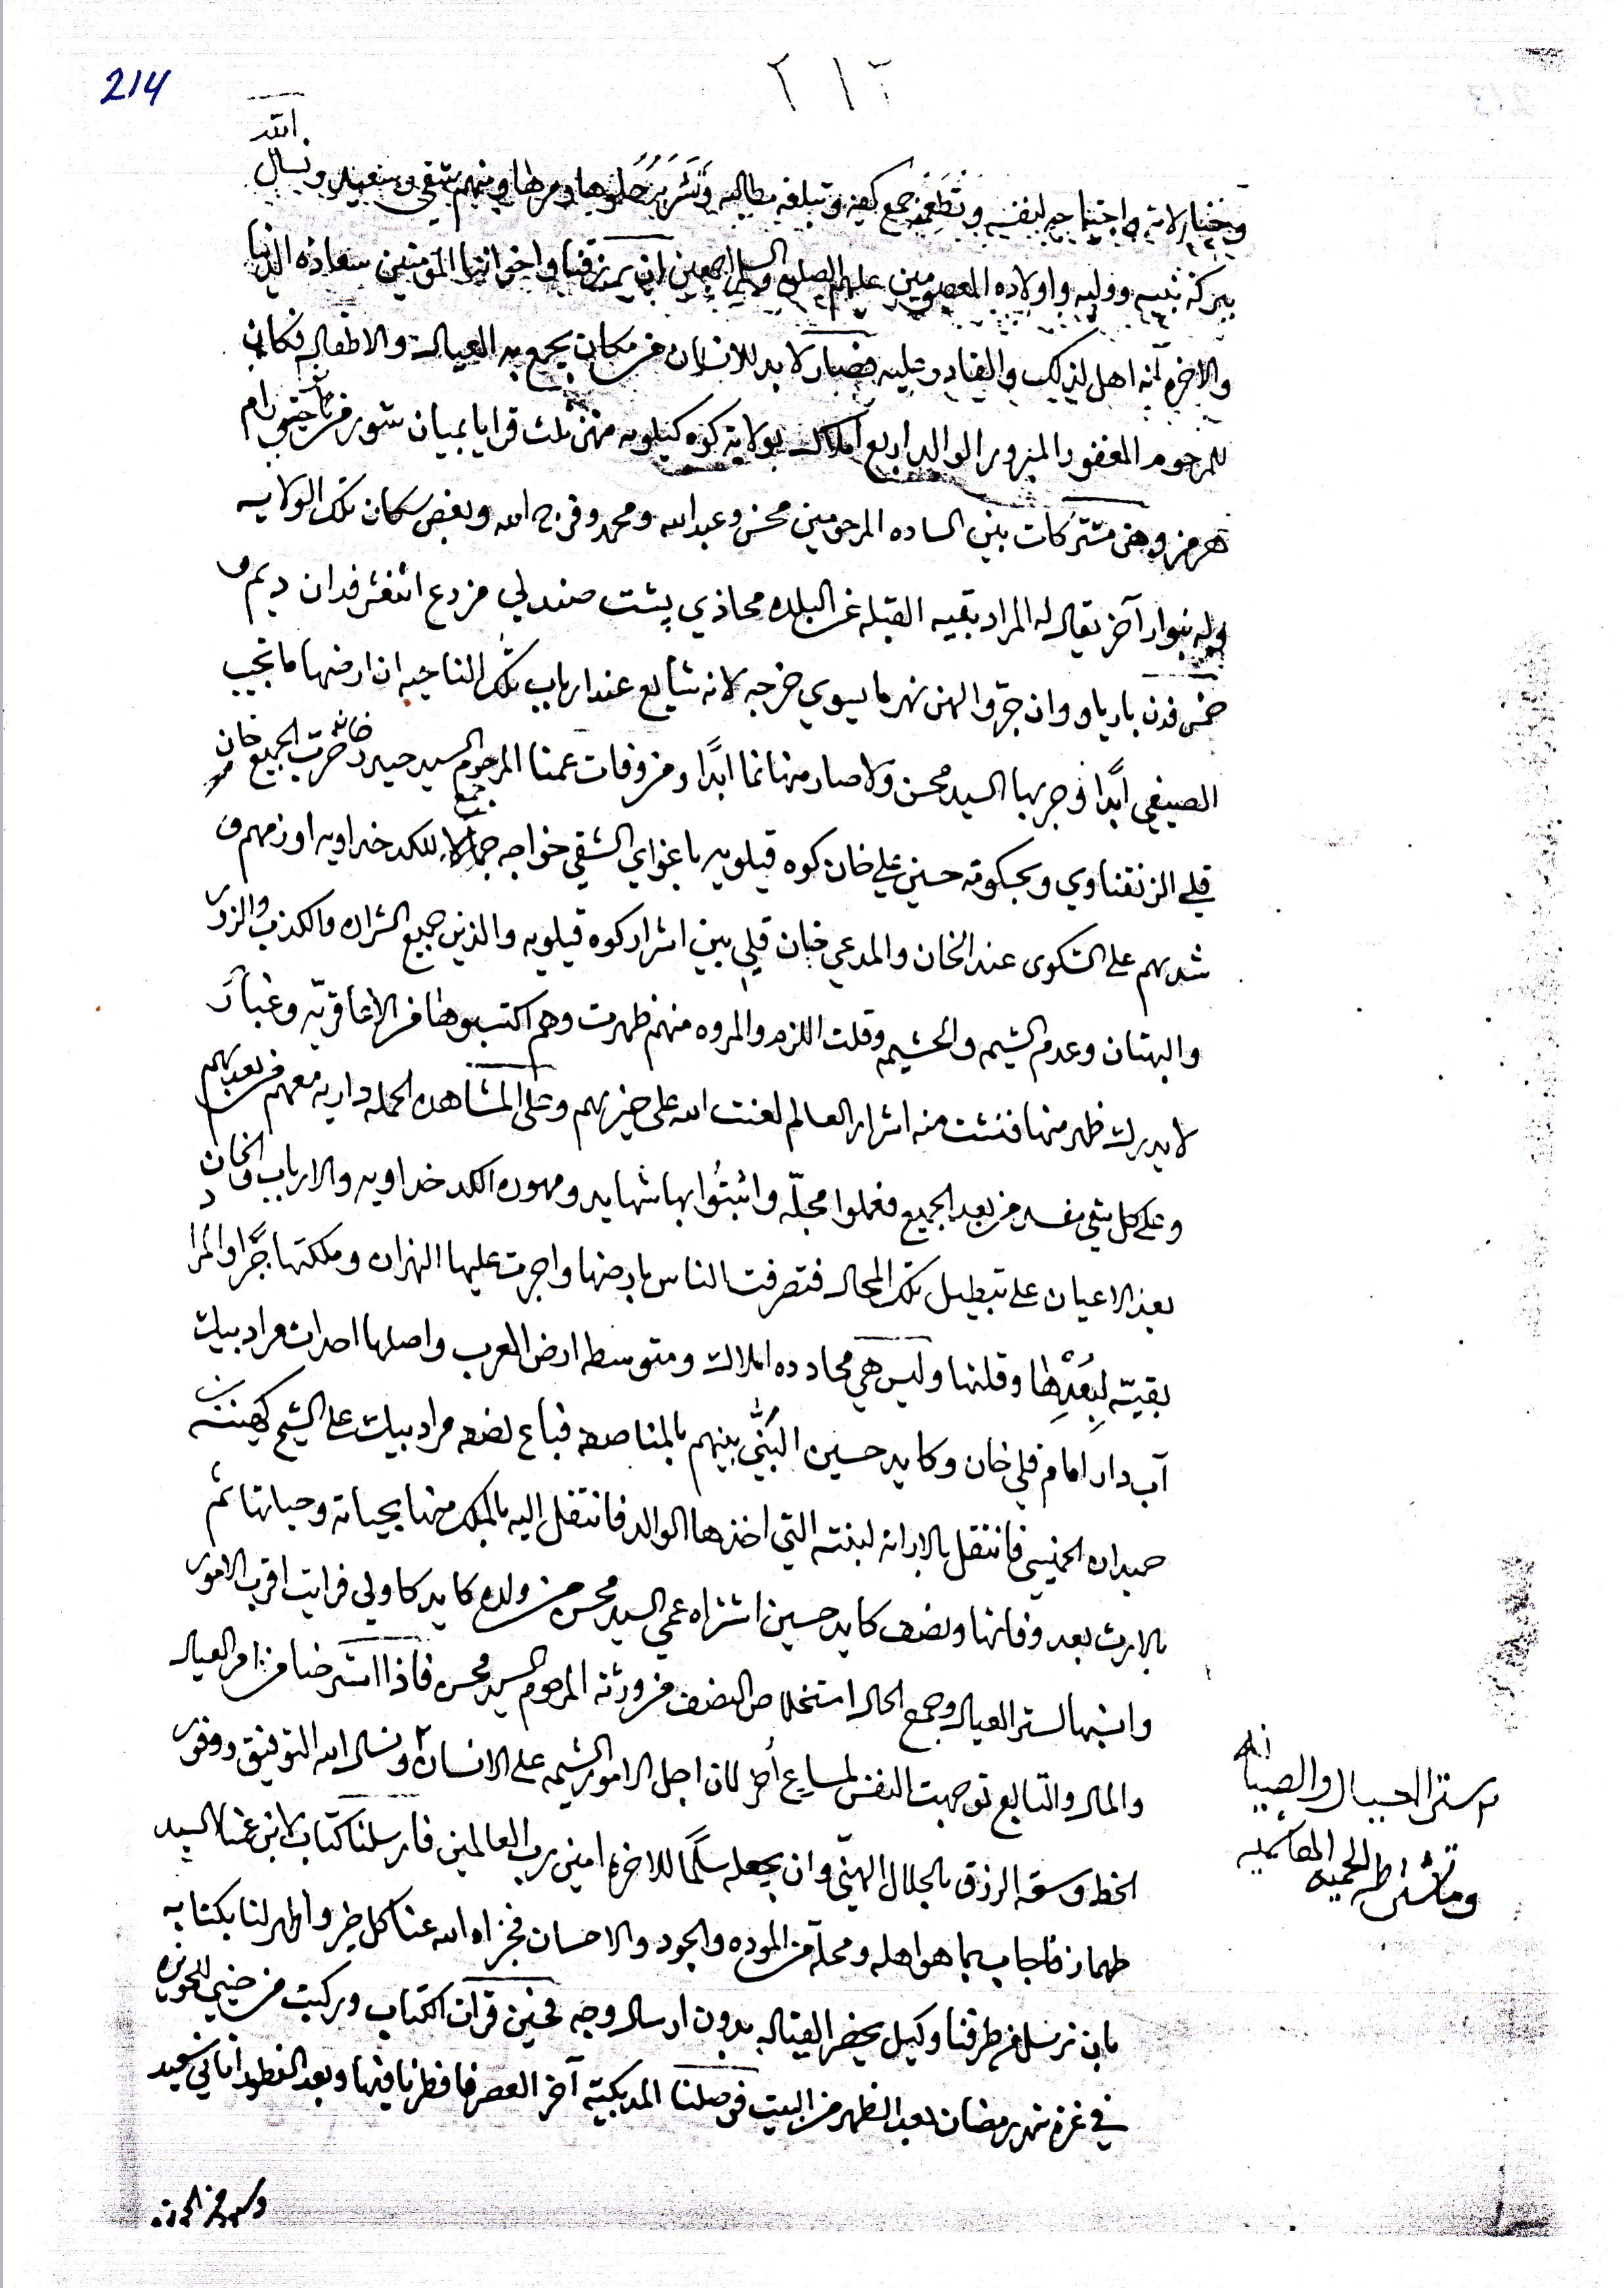 214
٢١٣
الله
وخيار لامة واحتياجه لنفسه وتطعمه جمع كفه وتبلغه مطالبه وتشربه حلوها ومرها ومنهم شقي وسعيد ونسأل
ببركة نبيه ووليه واولاده المعصومين عليهم الصلوة والسلام اجمعين ان يرزقنا واخواننا المؤمنين سعادة الدنيا
والاخره انه اهل لذلك والقادر عليه فصار لا بد للانسان من مكان يجمع به العيال والاطفال فكان
للمرحوم المغفور المبرور الوالد اربع املاك بولاية كوه كيلويه منهن ثلث قرايا بميان شور من رام
هرمز وهن مشتركات بين الساده المرحومين محسن وعبدالله ومحمد وفرج الله وبعض سكان تلك الولايه
وله بنوار آخر يقال له المراد بقيه القبله عن البلده محاذي پشت صندلي مزرع اثنعشر فدان ديم و
خمس فدن بارياو وان جروا لهن نهر ما يسوي خرجه لانه شايع عند ارباب تلك الناحيه ان ارضها ما تجيب
الصيفي ابدًا فجربها السيد محسن ولا صار منها نما ابدًا ومن وفات عمنا المرحوم السيد حيدر خان خربت الجميع خان
قلي الزنقناوي وبحكومة حسين علي خان كوه قيلويه باغواي الشقي خواجه جمالا جمع للكدخداويه اوزمهم و
شدبهم على الشكوى عند الخان والمدعي خان قلي بين اشرار كوه قيلويه والذين جميع الشراره والكذب والزور
والبهتان وعدم الشيمه والحشيمه وقلت اللزم والمروه منهم ظهرت وهم اكتسبوها من الاغاقريّه وغبار
لا يدرك ظهر منها فنشت منه اشرار العالم لعنت الله على خيرهم وعلى المشاهده الحمله داريه معهم من بعدهم
وعلى كل شقي مفسد من بعد الجميع فعملوا مجلّه واثبتُوا بها شهايد ومهوره الكدخداويه والارباب والخان و
بعض الاعيان على تبطيل تلك المحال فتصرفت الناس بارضها واجرت عليها النهران وملكتها جَرًا والمرا
بقيّه لِبُعْدِها وقلتها وليس هي محادده املاك ومتوسطه ارض العرب واصلها احداث مراد بيك
آب دار امام قلي خان وكايد حسين البُنّي بينهم بالمناصفه فباع نصفه مراد بيك على الشيخ
حيدان الخميسي فانتقل بالارائه لبنته التي اخذها الوالد فانتقل اليه بالملك منها بحياته وحياتها ثم
بالارث بعد وفاتها ونصف كايد حسين اشتراه عمي السيد محسن من ولده كايد كاولي فرايت اقرب الامور
وانسبها لستر العيال وجمع الحال استخلاص النصف من ورثة المرحوم السيد محسن فاذا استرضنا من امر العيال
والمال والتابع توجهت النفس لمساع اُخر لان اجل الامور الشيمه على الانسان ٢ ونسال الله التوفيق ووفور
الحظ وسعة الرزق بالحلال الهنيّ وان يجعله سلّمًا للاخره امين رب العالمين فارسلنا كتاب لابن عمنا السيد
طهماز فاجاب بما هو اهله ومحله من الموده والجود والاحسان فجزاه الله عنا كل خير واظهر لنا بكتابه
بان نرسل من طرفنا وكيل يحضر القباله بدون ارسال وجه فحين قرات الكتاب وركبت من خيني للحويزه
في غرة شهر رمضان بعد الظهر من البيت فوصلنا المدبكيّه آخر العصر فافطرنا فيها وبعد الفطور اتاني سعيد
ستر العيال والصبيان
الحميه الهاشميه